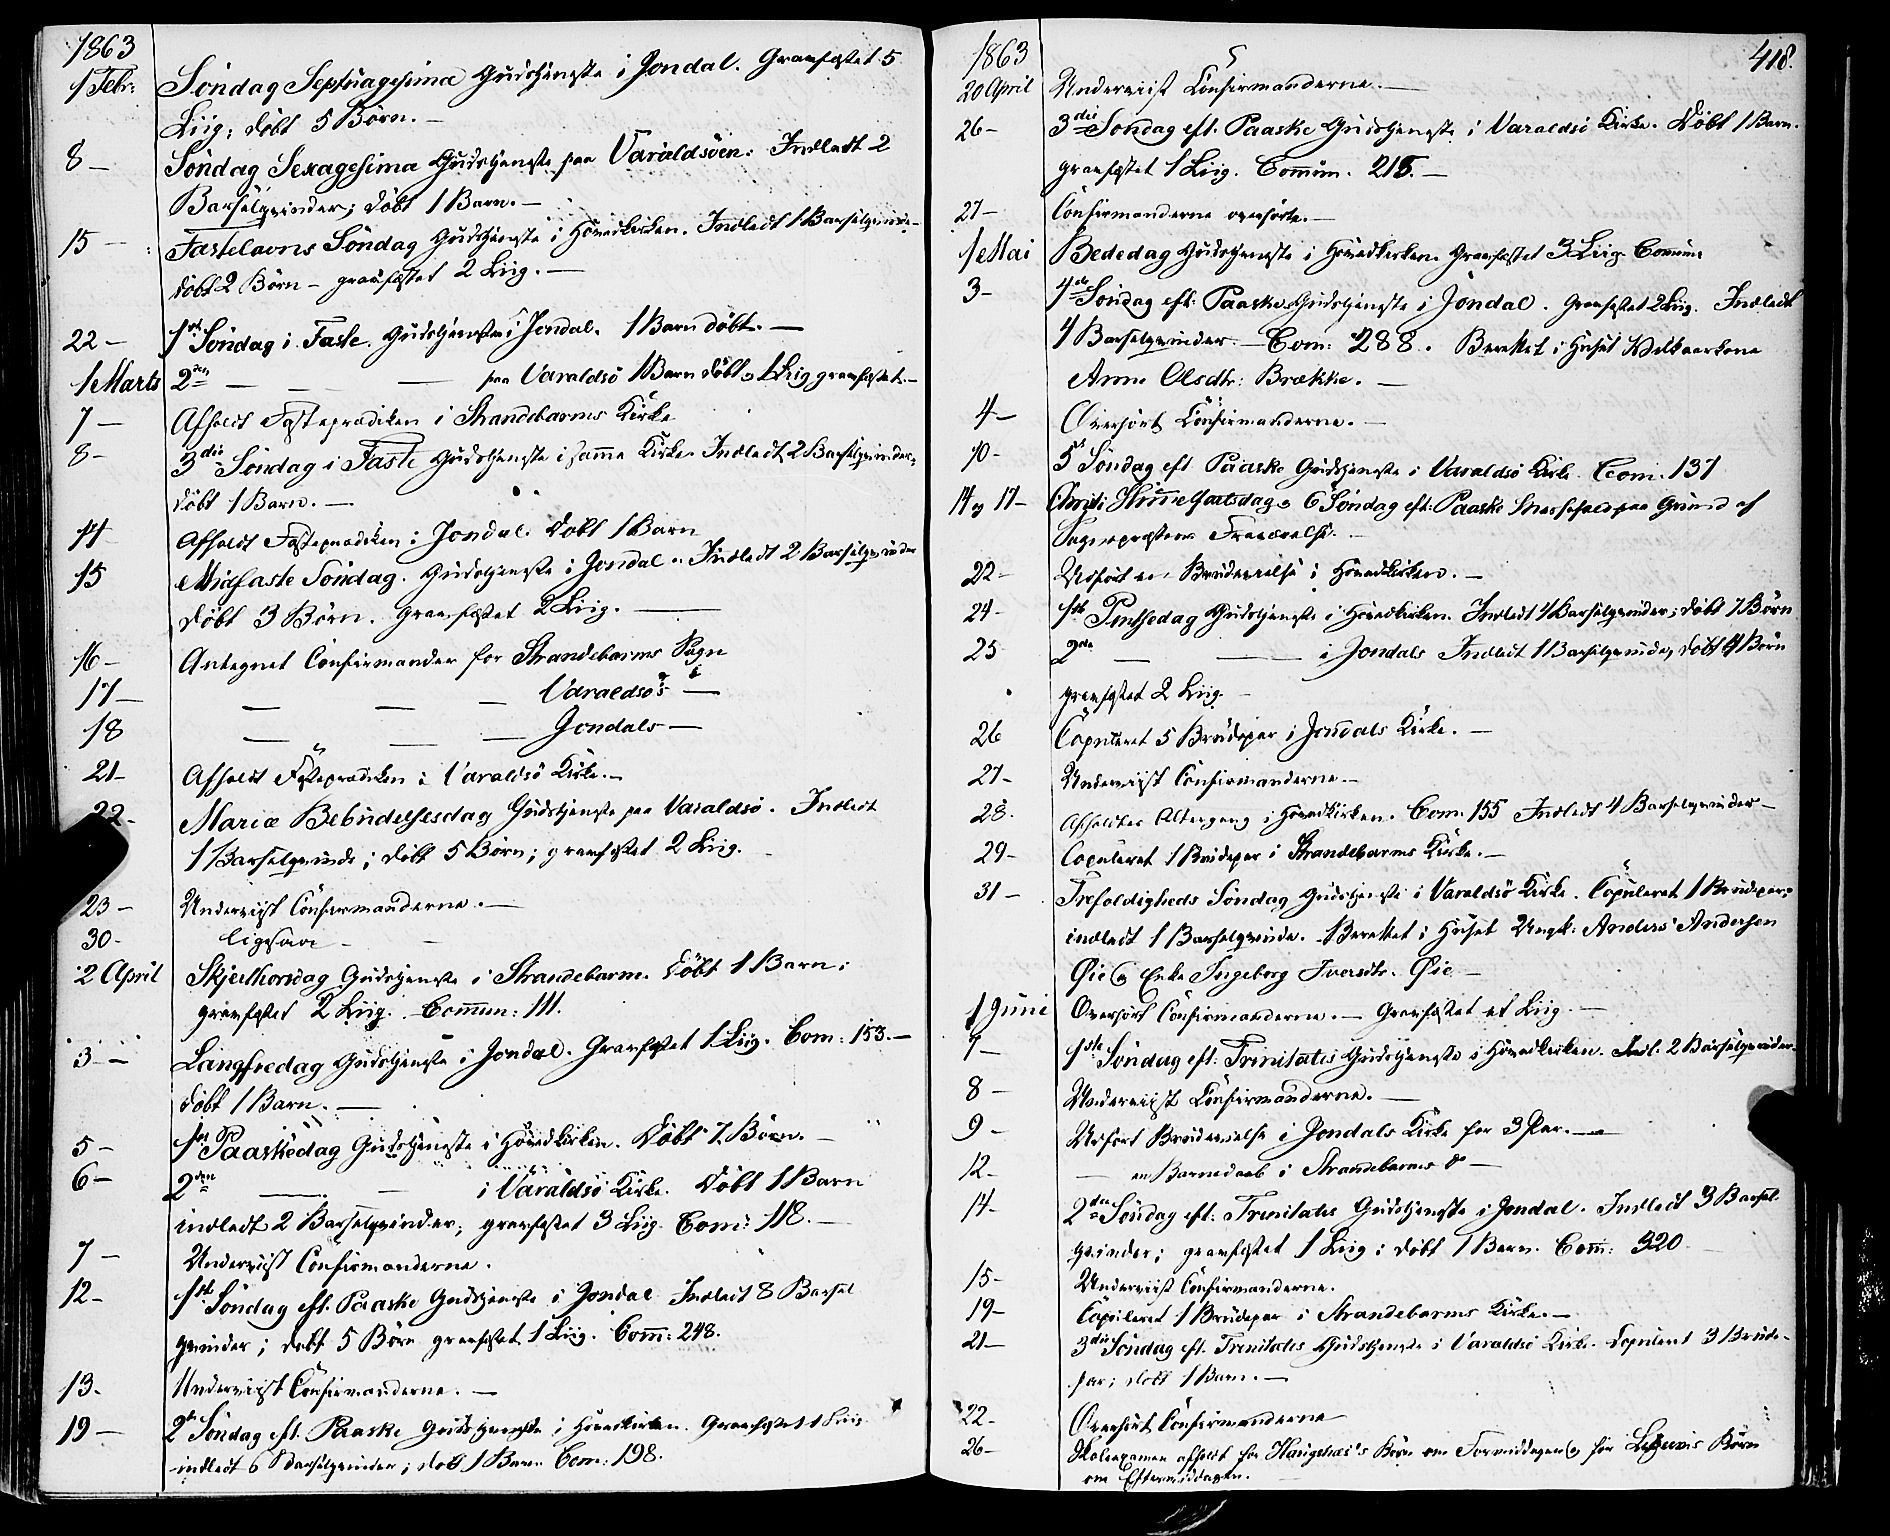 1863
1 Febr: Søndag Septuagesima Gudstjeneste i Jondal. Gravfæstet 5
Liig; døbt 5 Børn. —
8 — Søndag Sexagesima Gudstjeneste paa Varaldsøen. Indledt 2
Barselqvinder; døbt 1 Barn. —
15 — Fastelavns Søndag Gudstjeneste i Hovedkirken. Indledt 1 Barselqvinde
døbt 2 Børn — gravfæstet 2 Liig. —
22 — 1ste Søndag i Faste. Gudstjeneste i Jondal. 1 Barn døbt. —
1 Marts 2den — — — paa Varaldsø 1 Barn døbt, 1 Liig gravfæstet. —
7 — Afholdt Fasteprædiken i Strandebarms Kirke
8 — 3die Søndag i Faste Gudstjeneste i samme Kirke. Indledt 2 Barselqvinder,
døbt 1 Barn. —
14 Afholdt Fasteprædiken i Jondal. Døbt 1 Barn
15 Midfaste Søndag. Gudstjeneste i Jondal. Indledt 2 Barselqvinder
Døbt 3 Børn. Gravfæstet 2 Liig. —
16 — Antegnet Confirmander for Strandebarms Sogn
17 — — — — Varaldsø's —
18 — — — Jondals —
21 — Afholdt Fasteprædiken i Varaldsø Kirke. —
22 — Mariæ Bebudelsesdag Gudstjeneste paa Varaldsø. Indledt
1 Barselqvinde; døbt 5 Børn; gravfæstet 2 Liig.
23 — Underviist Confirmanderne. —
30 — ligesaa —
2 April Skjærthorsdag Gudstjeneste i Strandebarm. Døbt 1 Barn;
gravfæstet 2 Liig. Commun: 111.
3 — Langfredag Gudstjeneste i Jondal. Gravfæstet 1 Liig. Com: 153. —
døbt 1 Barn. —
5 — 1ste Paaskedag Gudstjeneste i Hovedkirken. Døbt 7 Børn. —
6 — 2den — — i Varaldsø Kirke. Døbt 1 Barn
indledt 2 Barselqvinder; gravfæstet 3 Liig. Com: 118. —
7 — Underviist Confirmanderne.
12 — 1ste Søndag eft. Paaske Gudstjeneste i Jondal. Indledt 8 Barsel
qvinder; døbt 5 Børn gravfæstet 1 Liig. Comm: 248.
13 — Underviist Confirmanderne. —
19 — 2den Søndag eft. Paaske Gudstjeneste i Hovedkirken. Gravfæstet 1 Liig
indledt 6 Barselqvinder; døbt 1 Barn. Com: 198.
418.
1863
20 April Underviist Confirmanderne. —
26 — 3die Søndag eft. Paaske Gudstjeneste i Varaldsø Kirke. Døbt 1 Barn.
gravfæstet 1 Liig. Commun. 215. —
27 — Confirmanderne overhørte. —
1 Mai Bededag Gudstjeneste i Hovedkirken. Gravfæstet 3 Liig. Commun:
3 — 4de Søndag eft. Paaske Gudstjeneste i Jondal. Gravfæstet 2 Liig. Indledt
4 Barselqvinder. — Com: 288. Berettet i Huset
Anne Olsdtr: Brække. —
4 — Overhørt Confirmanderne. —
10 — 5te Søndag eft. Paaske Gudstjeneste i Varaldsø Kirke. Com. 137
14 og 17 — Christi Himmelfartsdag og 6 Søndag eft. Paaske Messefald paa Grund af
Sognepræstens Fraværelse. —
22 — Udført en Brudevielse i Hovedkirken. —
24 — 1ste Pintsedag Gudstjeneste i Hovedkirken. Indledt 4 Barselqvinder; døbt 7 Børn
25 2den — — i Jondals Indledt 1 Barselqvinde, døbt 4 Børn
gravfæstet 2 Liig. —
26 Copuleret 5 Brudepar i Jondals Kirke. —
27 — Underviist Confirmanderne. —
28. Afholdtes Altergang i Hovedkirken. Com. 155 Indledt 4 Barselqvinder —
29 — Copuleret 1 Brudepar i Strandebarms Kirke. —
31 — Trefoldigheds Søndag Gudstjeneste i Varaldsø Kirke. Copuleret 1 Brudepar;
indledt 1 Barselqvinde. Berettet i Huset Ungk: Anders Andersen
Øie og Enke Ingeborg Iversdtr. Øie —
1 Juni Overhørt Confirmanderne. — Gravfæstet et Liig. —
7 — 1ste Søndag eft. Trinitatis Gudstjeneste i Hovedkirken. Indl. 2 Barselqvinder.
8 — Underviist Confirmanderne. —
9 — Udført Brudevielse i Jondals Kirke for 3 Par. —
12 — — en Barnedaab i Strandebarms do —
14 — 2den Søndag eft. Trinitatis Gudstjeneste i Jondal. Indledt 3 Barsel-
qvinder; gravfæstet 1 Liig; døbt 1 Barn. Com: 320
15 — Underviist Confirmanderne.
19 — Copuleret 1 Brudepar i Strandebarms Kirke. —
21 — 3die Søndag eft. Trinitatis Gudstjeneste i Varaldsø Kirke. Copuleret 3 Brude-
par; døbt 1 Barn. —
22 — Overhørt Confirmanderne
26 — Skoleexamen afholdt for Børn om Formiddagen og for Børn
om Eftermiddagen.